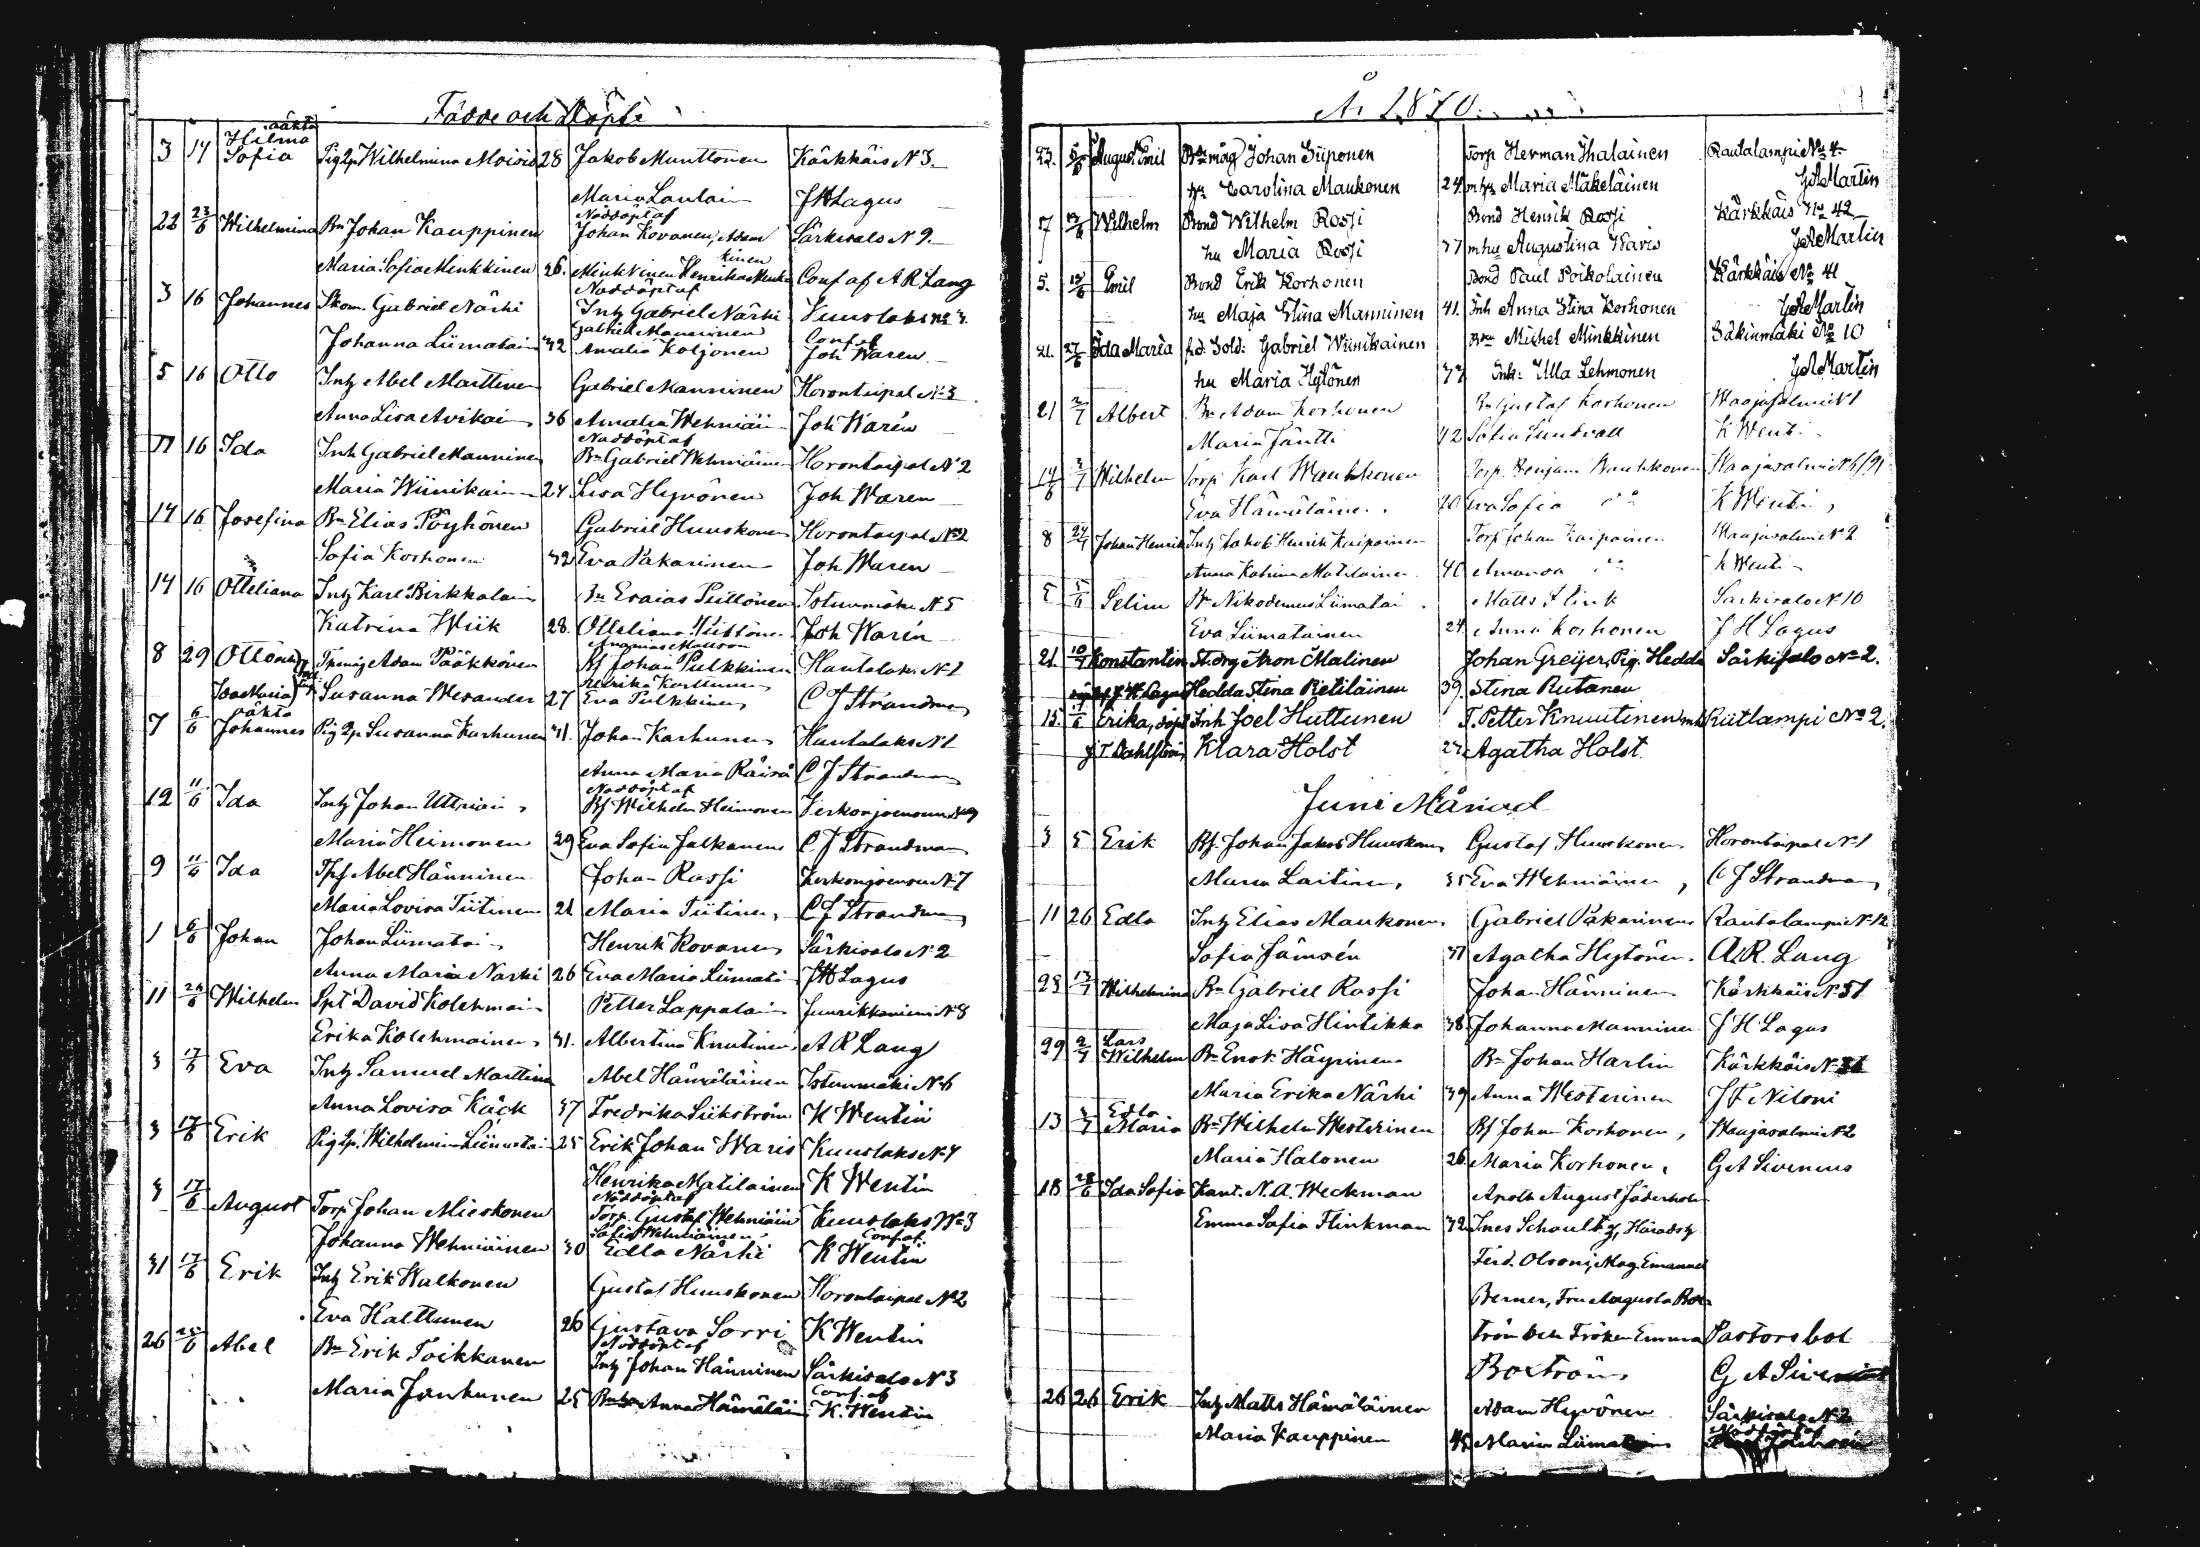 Födde och Döpte
oäkta
3 14 Hilma
Sofia Pig Lp. Wilhelmina Moisio 28 Jakob Munttonen Kärkkäis N 3
Maria Lautain J H Lagus
22 23/6 Wilhelmina Bn Johan Kauppinen Nöddöpt af
Johan Kovanen, Adam Särkisalo N 9.
Maria Sofia Minkkinen 26. Minkkinen Henrika Mink
kinen Conf af A R Lang
3 16 Johannes Skom. Gabriel Närhi Nöddöpt af
Inh Gabriel Närhi Kuuslaks No 3.
Johanna Liimatain 42 Gabriel Manninen
Amalia Koljonen Conf af
Joh Warén
5 16 Otto Inh Abel Marttinen Gabriel Manninen Horontaipal N 3
Anna Lisa Avikain 36 Amalia Wehniäin Joh Warén
11 16 Ida Inh Gabriel Manninen Nöddöpt af
Bn Gabriel Wehniäinen Horontaipal N 2
Maria Wiinikain 24 Lisa Hyvönen Joh Waren
14 16 Josefina Bn Elias Pöyhönen Gabriel Huuskonen Horontaipal N 2
Sofia Korhonen 42 Eva Pakarinen Joh Waren
14 16 Otteliana Inh Karl Pirkkalain Esaias Piittönen Istunmäki N 5
Katrina Wiik 28. Otteliana Joh Warén
8 29 Otto och Adam Pääkkönen Bf Johan Pulkkinen Hautalaks N 1
Ida Maria Susanna Wesander 27 Eva Pulkkinen C J Strandman
oäkta
7 6/6 Johannes Pig Lp Susanna Karhunen 41. Johan Karhunen Hautalaks N 1
Anna Maria Räisä C J Strandman
12 11/6 Ida Inh Johan Uttriain Nöddöpt af
Bf Wilhelm Heimonen Kerkonjoensuu N 9
Maria Heimonen 29 Eva Sofia Jalkanen C J Strandman
9 11/6 Ida Abel Hänninen Johan Rossi Kerkonjoensuu N 7
Maria Lovisa Tiitinen 21 Maria Tiitinen C J Strandman
1 6/6 Johan Johan Liimatai Henrik Kovanen Särkisalo N 2
Anna Maria Närhi 26 Eva Maria Liimatai J H Lagus
11 26/6 Wilhelm Spt David Kolehmain Petter Lappalain N 8
Erika Kolehmainen 41. Albertina Knutinen A R Lang
3 17/6 Eva Inh Samuel Marttinen Abel Hämäläinen Istunmäki N 6
Anna Lovisa Käck 37 Fredrika Siikström K Wentin
3 17/6 Erik Pig Lp. Wilhelmin Liimatai 25 Erik Johan Waris Kuuslaks N 4
Henrika Matilainen K Wentin
3 17/6 August Torp Johan Mieskonen Nöddöpt af
Torp. Gustaf Wehniäin Kuuslaks No 3
Johanna Wehniäinen 30 Sofia Wehniäinen
Edla Närhi Conf af
K Wentin
31 17/6 Erik Inh Erik Walkonen Gustaf Huuskonen Horontaipal N 2
Eva Halttunen 26 Gustava Sorri K Wentin
26 25/6 Abel Bn Erik Toikkanen Nöddöpt af
Inh Johan Hänninen Särkisalo N 3
Maria Janhunen 25 Anna Hämäläin Conf. af
K. Wentin
År 1870.
23. 5/6 August Emil Bdemåg Johan Siiponen Torp Herman Ihalainen Rautalampi No 4
hu Carolina Maukonen 24 mhu Maria Mäkeläinen G A Martin
17 12/6 Wilhelm Bond Wilhelm Rossi Bond Henrik Rossi Kärkkäis No 42
hu Maria Rossi 37 mhu Augustina Waris G A Martin
5. 12/6 Emil Bond Erik Korhonen Bond Paul Poikolainen Kärkkäis No 41
hu Maja Stina Manninen 41. Inh Anna Stina Korhonen G A Martin
21. 27/6 Ida Maria fd. Sold: Gabriel Wiinikainen Bon Michel Minkkinen Säkinmäki No 10
hu Maria Hytönen 37 Inh: Ulla Lehmonen G A Martin
21 3/7 Albert Bn Adam Korhonen Gustaf Korhonen Waajasalmi N 1
Maria Jäntti 42 Sofia Sundvall K Wenti
14/6 3/7 Wilhelm Torp Karl Wauhkonen Torp. Benjam Wauhkonen Waajasalmi
Eva Hämäläine 20 Eva Sofia K Wenti
8 24/7 Johan Henrik Inh Jakob Henrik Kaipainen Torp Johan Kaipainen Waajasalmi N 2
Anna Katrina Matilainen 40 Amanda K Wenti
5 5/6 Selim Bn Nikodemus Liimatai Matts Flink Särkisalo N 10
Eva Liimatainen 24 Anna Korhonen J H Lagus
21 10/7 Konstantin St.drg Aron Malinen Johan Greijer, Pig. Hedda Särkisalo No 2.
J H Lagus Hedda Stina Pietiläinen 39. Stina Rutanen
15 Erika, döpt Inh Joel Huttunen T. Petter Knuutinen mh Kiitlampi No 2.
J T Dahlström Klara Holst 27 Agatha Holst
Juni Månad
3 5 Erik Bf. Johan Jakob Huuskonen Gustaf Huuskonen Horontaipal N 1
Maria Laitinen 35 Eva Wehniäinen C J Strandman
11 26 Edla Inh Elias Maukonen Gabriel Pakarinen Rautalampi N 12
Sofia Jämsén 37 Agatha Hytönen A. R. Lang
23 17/7 Wilhelmina Bn Gabriel Rossi Johan Hänninen Kärkkäis N 51
Maja Lisa Hintikka 38 Johanna Manninen J H Lagus
29 2/7 Lars
Wilhelm Bn Enok Häyrinen Bn Johan Harlin Kärkkäis N
Maria Erika Närhi 39 Anna Westerinen J F Niloni
13 3/7 Edla
Maria Bn Wilhelm Westerinen Bf Johan Korhonen Waajasalmi N 2
Maria Halonen 26 Maria Korhonen G A Sirenius
18 28/6 Ida Sofia Kant. N. A. Weckman Apoth August Jäderholm
Emma Sofia Flinkman 32 Ines Schaultz, Häradsh
Ferd. Olsoni, Mag. Emanuel
Berner, Fru Augusta Box
tröm och Fröken Emma Pastorsbol
Boxtröm G A Sirenius
26 26 Erik Inh Matts Hämäläinen Adam Hyvönen Särkisalo N 2
Maria Kauppinen 45 Maria Liimatain Nöddöpt af